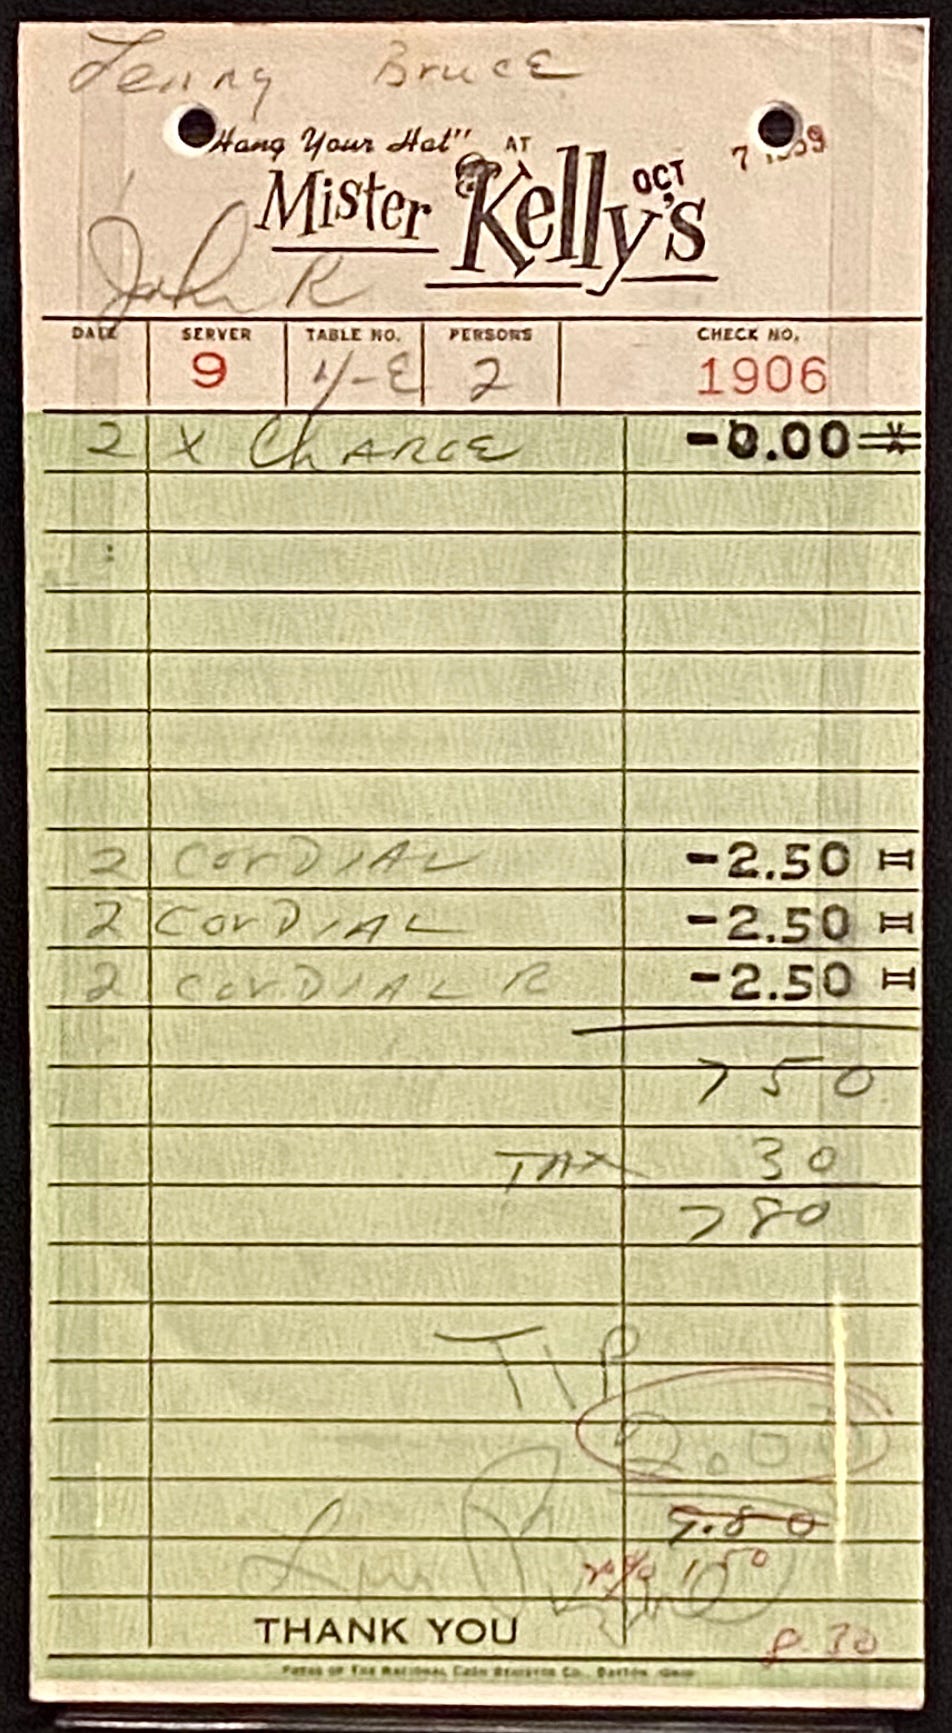 Lenny Bruce
"Hang Your Hat" AT
OCT 7 1959
Mister Kelly's
John R
DATE SERVER TABLE NO. PERSONS CHECK NO.
9 4-E 2 1906
2 X CHARGE -0.00
2 CORDIAL -2.50
2 CORDIAL -2.50
2 CORDIAL R -2.50
7 50
TAX 30
7 80
TIP
2.00
9.80
20% 1 50
THANK YOU
8.30
PRESS OF THE NATIONAL CASH REGISTER CO., DAYTON, OHIO